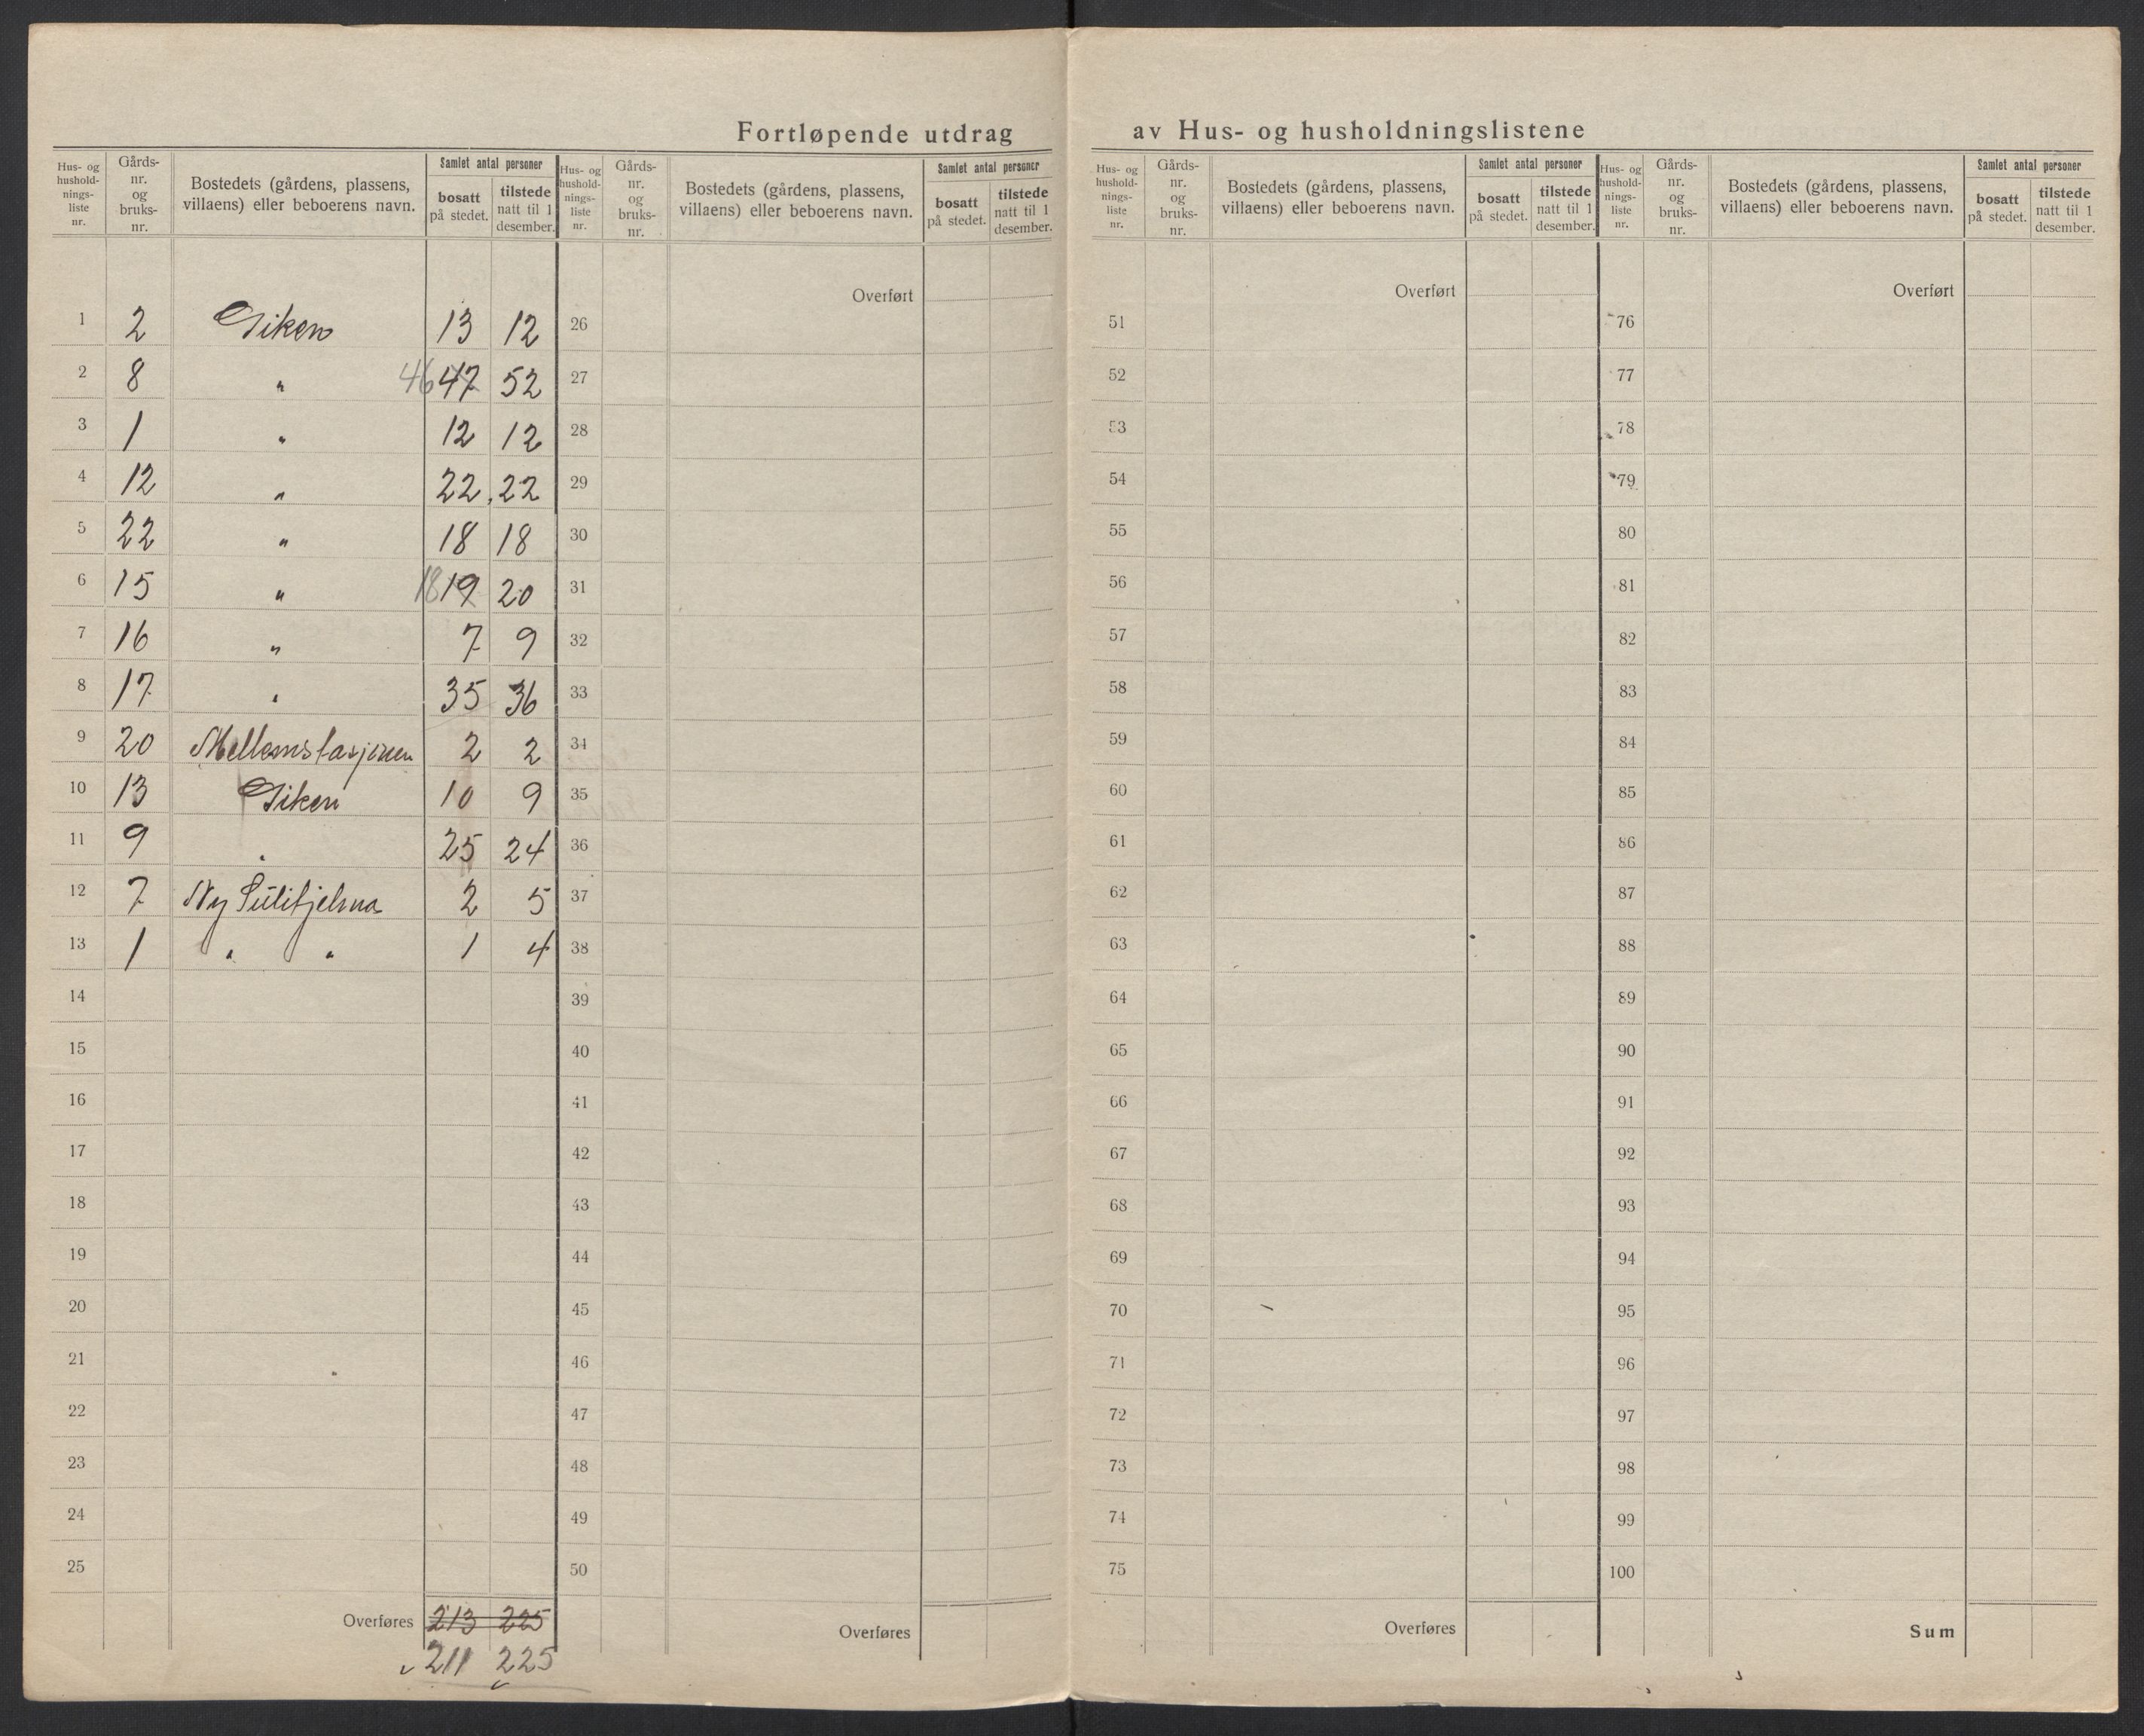 Fortløpende utdrag av Hus- og husholdningslistene
Hus- og hushold- nings- liste nr.
Gårds- nr. og bruks- nr.
Bostedets (gårdens, plassens, villaens) eller beboerens navn.
Samlet antal personer
bosatt på stedet.
tilstede natt til 1 desember.
Hus- og hushold- nings- liste nr.
Gårds- nr. og bruks- nr.
Bostedets (gårdens, plassens, villaens) eller beboerens navn.
Samlet antal personer
bosatt på stedet.
tilstede natt til 1 desember.
Hus- og hushold- nings- liste nr.
Gårds- nr. og bruks- nr.
Bostedets (gårdens, plassens, villaens) eller beboerens navn.
Samlet antal personer
bosatt på stedet.
tilstede natt til 1 desember.
Hus- og hushold- nings- liste nr.
Gårds- nr. og bruks- nr.
Bostedets (gårdens, plassens, villaens) eller beboerens navn.
Samlet antal personer
bosatt på stedet.
tilstede natt til 1 desember.
1 2 Giken 13 12
2 8 " 46 47 52
3 1 " 12 12
4 12 " 22 22
5 22 " 18 18
6 15 " 18 19 20
7 16 " 7 9
8 17 " 35 36
9 20 Mellemstasjonen 2 2
10 13 Giken 10 9
11 9 " 25 24
12 7 Ny Sulitjelma 2 5
13 1 " " 1 4
14
15
16
17
18
19
20
21
22
23
24
25
Overføres 213 225
211 225
Overført
26
27
28
29
30
31
32
33
34
35
36
37
38
39
40
41
42
43
44
45
46
47
48
49
50
Overføres
Overført
51
52
53
54
55
56
57
58
59
60
61
62
63
64
65
66
67
68
69
70
71
72
73
74
75
Overføres
Overført
76
77
78
79
80
81
82
83
84
85
86
87
88
89
90
91
92
93
94
95
96
97
98
99
100
Sum